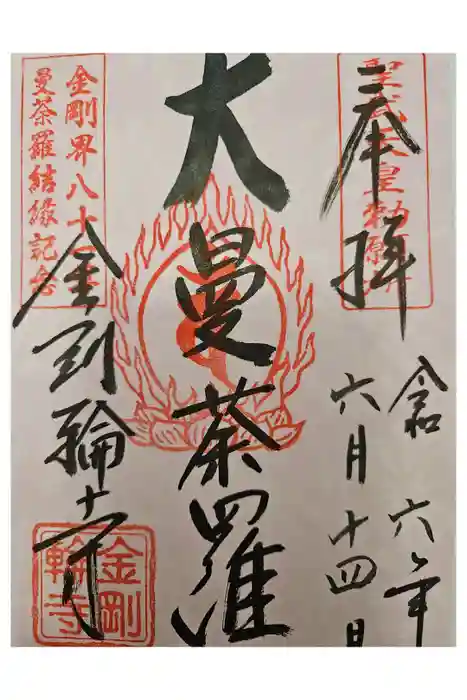 聖武天皇勅願
奉拝
令和六年
六月十四日
大曼荼羅
金剛界八十一尊
曼荼羅結縁記念
金剛輪寺
金剛
輪寺